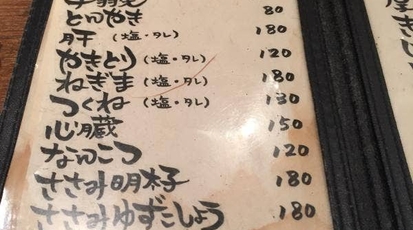 とんやき 80
肝 (塩・タレ) 180
やきとり (塩・タレ) 120
ねぎま (塩・タレ) 180
つくね (塩・タレ) 130
心臓 150
なんこつ 120
ささみ明太子 180
ささみゆずこしょう 180